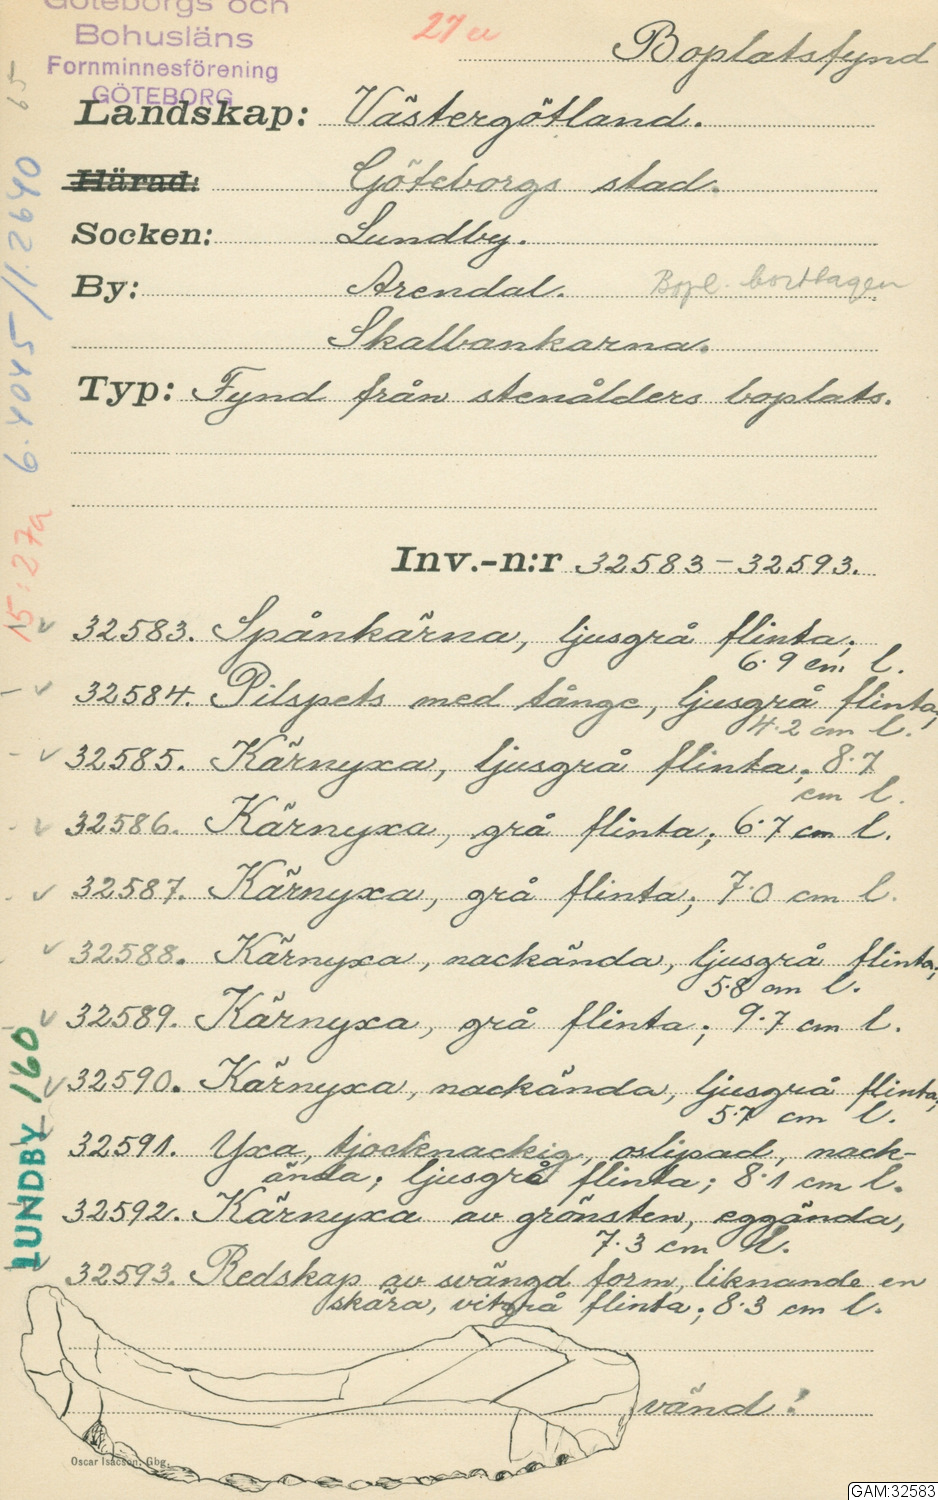 Göteborgs och
Bohusläns
Fornminnesförening
GÖTEBORG
27a
Boplatsfynd
65
Landskap: Västergötland.
Härad: Göteborgs stad.
Socken: Lundby.
By: Arendal. Bopl. borttagen
Skalbankarna.
Typ: Fynd från stenålders boplats.
6.4045/1.2640
15:27a
Inv.-n:r 32583-32593.
32583. Spånkärna, ljusgrå flinta;
6.9 cm l.
32584. Pilspets med tånge, ljusgrå flinta;
4.2 cm l.
32585. Kärnyxa, ljusgrå flinta; 8.7
cm l.
32586. Kärnyxa, grå flinta; 6.7 cm l.
32587. Kärnyxa, grå flinta; 7.0 cm l.
32588. Kärnyxa, nackända, ljusgrå flinta;
5.8 cm l.
32589. Kärnyxa, grå flinta; 9.7 cm l.
32590. Kärnyxa, nackända, ljusgrå flinta;
5.7 cm l.
32591. Yxa, tjocknackig, oslipad, nack-
ända; ljusgrå flinta; 8.1 cm l.
32592. Kärnyxa av grönsten, eggända,
7.3 cm l.
32593. Redskap av svängd form, liknande en
skära, vitgrå flinta; 8.3 cm l.
LUNDBY 160
vänd!
Oscar Isacson, Gbg.
GAM:32583